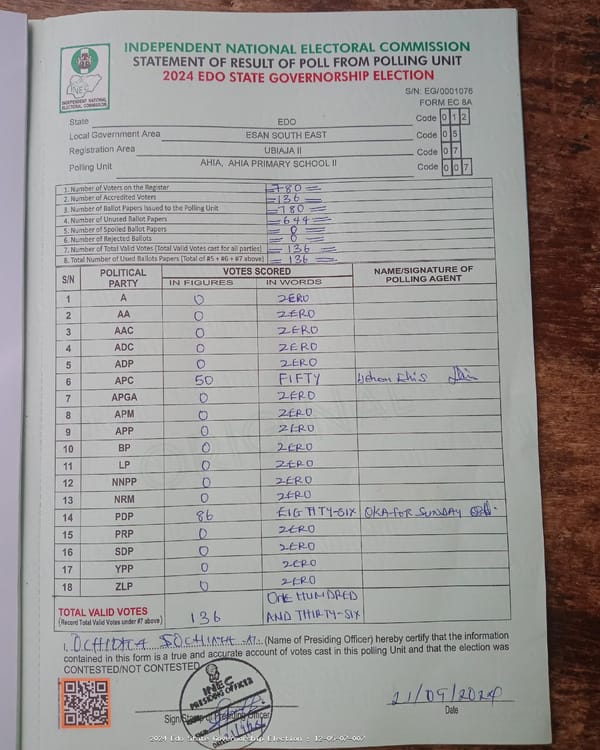 INDEPENDENT NATIONAL ELECTORAL COMMISSION
STATEMENT OF RESULT OF POLL FROM POLLING UNIT
2024 EDO STATE GOVERNORSHIP ELECTION
INEC
INDEPENDENT NATIONAL ELECTORAL COMMISSION
S/N: EG/0001076
FORM EC 8A
State EDO Code 0 1 2
Local Government Area ESAN SOUTH EAST Code 0 5
Registration Area UBIAJA II Code 0 7
Polling Unit AHIA, AHIA PRIMARY SCHOOL II Code 0 0 7
1. Number of Voters on the Register =780=
2. Number of Accredited Voters =136=
3. Number of Ballot Papers Issued to the Polling Unit =780=
4. Number of Unused Ballot Papers =644=
5. Number of Spoiled Ballot Papers =0=
6. Number of Rejected Ballots =0=
7. Number of Total Valid Votes (Total Valid Votes cast for all parties) =136=
8. Total Number of Used Ballots Papers (Total of #5 + #6 + #7 above) =136=
S/N POLITICAL PARTY VOTES SCORED NAME/SIGNATURE OF POLLING AGENT
IN FIGURES IN WORDS
1 A 0 ZERO
2 AA 0 ZERO
3 AAC 0 ZERO
4 ADC 0 ZERO
5 ADP 0 ZERO
6 APC 50 FIFTY
7 APGA 0 ZERO
8 APM 0 ZERO
9 APP 0 ZERO
10 BP 0 ZERO
11 LP 0 ZERO
12 NNPP 0 ZERO
13 NRM 0 ZERO
14 PDP 86 EIGTHTY-SIX OKAFOR SUNDAY
15 PRP 0 ZERO
16 SDP 0 ZERO
17 YPP 0 ZERO
18 ZLP 0 ZERO
TOTAL VALID VOTES 136 ONE HUNDRED
(Record Total Valid Votes under #7 above) AND THIRTY-SIX
I, (Name of Presiding Officer) hereby certify that the information
contained in this form is a true and accurate account of votes cast in this polling Unit and that the election was
CONTESTED/NOT CONTESTED
INEC
PRESIDING OFFICER
Sign/Stamp of Presiding Officer
21/09/2024
Date
2024 Edo State Governorship Election : 12-05-07-007